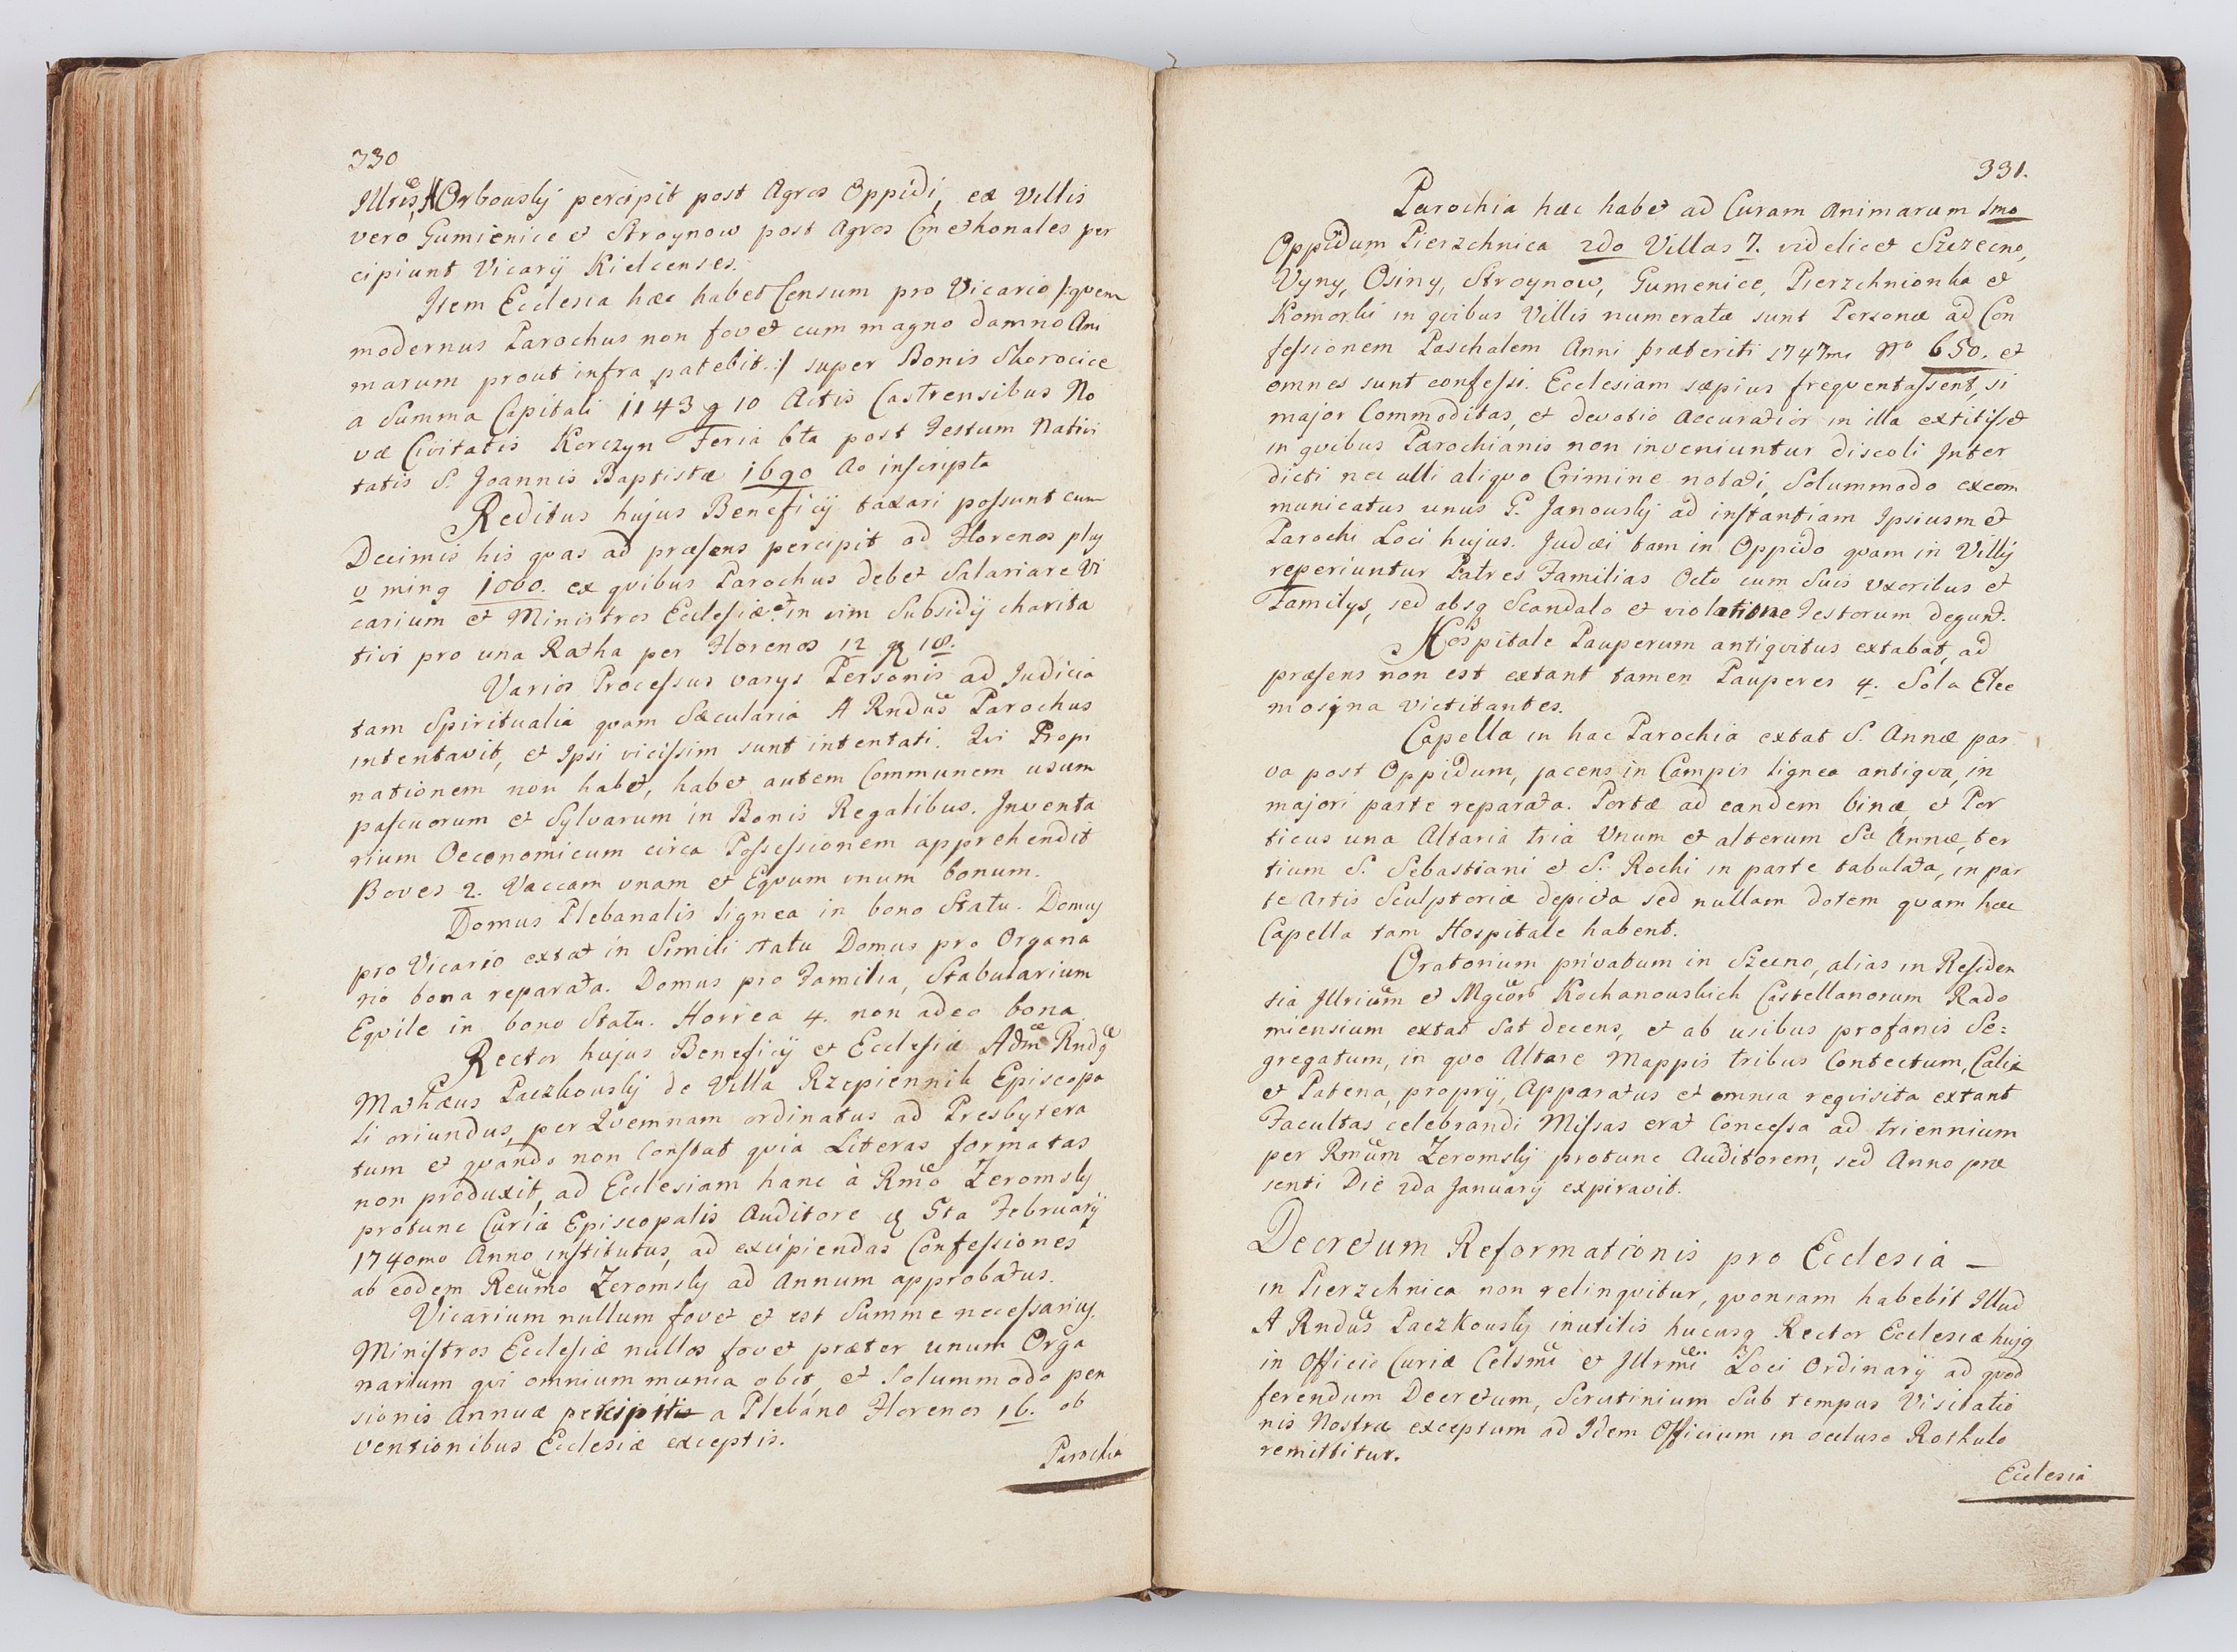 330
Illris A Orbouskj percipit post Agros Oppidi, ex Villis
vero Gumienice et Stroynow post Agros Cmethonales per
cipiunt Vicarij Kielcenses.
Item Ecclesia hæc habet Censum pro Vicario /:qvem
modernus Parochus non fovet cum magno damno Ani
marum prout infra patebit:/ super Bonis Skorocice
a Summa Capitali 1143 g 10 Actis Castrensibus No
væ Civitatis Korczyn Feria 6ta post Festum Nativi
tatis S. Joannis Baptistæ 1690 Ao inscripta
Reditus hujus Beneficij taxari possunt cum
Decimis his qvas ad præsens percipit ad Florenos plus
v ming 1000. ex qvibus Parochus debet Salariare Vi
carium et Ministros Ecclesiæ et in vim Subsidij charita
tivi pro una Ratha per Florenos 12 g 18.
Varios Processus varys Personis ad Judicia
tam Spiritualia qvam Sæcularia A Rndus Parochus
intentavit, et Ipsi vicissim sunt intentati. Qvi Propi
nationem non habet, habet autem Communem usum
pascuorum et Sylvarum in Bonis Regalibus. Inventa
rium Oeconomicum circa Possessionem apprehendit
Boves 2. Vaccam unam et Eqvum unum bonum.
Domus Plebanalis lignea in bono Statu. Domus
pro Vicario extat in Simili statu Domus pro Organa
rio bona reparata. Domus pro Familia, Stabularium
Eqvile in bono Statu. Horrea 4. non adeo bona
Rector hujus Beneficij et Ecclesiæ Adm Rndg
Mathæus Paczkouskj de Villa Rzepiennik Episcopa
li oriundus, per Qvemnam ordinatus ad Presbytera
tum et qvando non Constat qvia Literas formatas
non produxit, ad Ecclesiam hanc à Rmo Zeromskj
protunc Curiæ Episcopalis Auditore g 5ta Februarij
1740mo Anno institutus, ad excipiendas Confessiones
ab eodem Reumo Zeromskj ad Annum approbatus.
Vicarium nullum fovet et est Summe necessarius.
Ministros Ecclesiæ nullos fovet præter unum Orga
narium qvi omnium munia obit, et Solummodo pen
sionis Annuæ percipit a Plebano Florenos 16. ob
ventionibus Ecclesiæ exceptis.
Parochia
331.
Parochia hæc habet ad Curam Animarum 1mo
Oppidum Pierzchnica 2do Villas 7. videlicet Szczecno,
Vyny, Osiny, Stroynow, Gumenice, Pierzchnionka et
Komorki in qvibus Villis numeratæ sunt Personæ ad Con
fessionem Paschalem Anni præteriti 1747mi No 650. et
omnes sunt confessi. Ecclesiam sæpius freqventassent, si
major Commoditas, et devotio accuratior in illa extitisset
in qvibus Parochianis non inveniuntur discoli Inter
dicti nec ulli aliqvo Crimine notati, Solummodo excom
municatus unus G. Janouskj ad instantiam Ipsiusmet
Parochi Loci hujus. Judæi tam in Oppido qvam in Villis
reperiuntur Patres Familias Octo cum Suis Uxoribus et
Familys, sed absq Scandalo et violatione Festorum degunt.
Hospitale Pauperum antiqvitus extabat, ad
præsens non est extant tamen Pauperes 4. Sola Elee
mosyna victitantes.
Capella in hac Parochia extat S. Annæ par
va post Oppidum, jacens in Campis lignea antiqva, in
majori parte reparata. Portæ ad eandem binæ, et Por
ticus una Altaria tria Unum et alterum Sæ Annæ, ter
tium S. Sebastiani et S. Rochi in parte tabulata, in par
te Artis Sculptoriæ depicta sed nullam dotem qvam hæc
Capella tam Hospitale habent.
Oratorium privatum in Szecno, alias in Residen
tia Jllrium et Mgcorb Kochanouskich Castellanorum Rado
miensium extat Sat decens, et ab usibus profanis Se=
gregatum, in qvo Altare Mappis tribus Contectum, Calix
et Patena, proprij, Apparatus et omnia reqvisita extant
Facultas celebrandi Missas erat Concessa ad triennium
per Rmum Zeromskj protunc Auditorem, sed Anno præ
senti Die 2da January expiravit.
Decretum Reformationis pro Ecclesia –
in Pierzchnica non relinqvitur, qvoniam habebit Illud
A Rndus Paczkouskj inutilis hucusq Rector Ecclesiæ hujg
in Officio Curiæ Celsmi et Jllrmi Loci Ordinarij ad qvod
ferendum Decretum, Scrutinium Sub tempus Visitatio
nis Nostræ exceptum ad Idem Officium in occluso Rothulo
remittitur.
Ecclesia